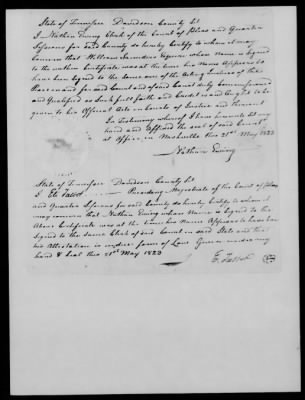 State of Tennessee Davidson County Sct
I Nathan Ewing Clerk of the Court of Pleas and Quarter
Sessions for said County do hereby Certify to whom it may
Concern that William Saunders Esquire whose name is signed
to the within Certificate was at the time his name appears to
have been signed to the same one of the acting Justices of the
Peace in and for said County and of said Court duly Commissioned
and Qualified as such full faith and Credit is and ought to be
given to his official Acts in Courts of Justice and thereout
In Testimony whereof I have hereunto set my
hand and affixed the seal of said Court
at office in Nashville this 21st May 1823
Nathan Ewing
State of Tennessee Davidson County Sct
I Eli Talbot Presiding Magistrate of the Court of pleas
and Quarter Sessions for said County do hereby Certify to whom it
may concern that Nathan Ewing whose Name is signed to the
above Certificate was at the time his Name appears to have been
signed to the same Clerk of said Court in said State and that
his attestation is in due form of Law Given under my
hand & seal this 21st May 1823
E. Talbot